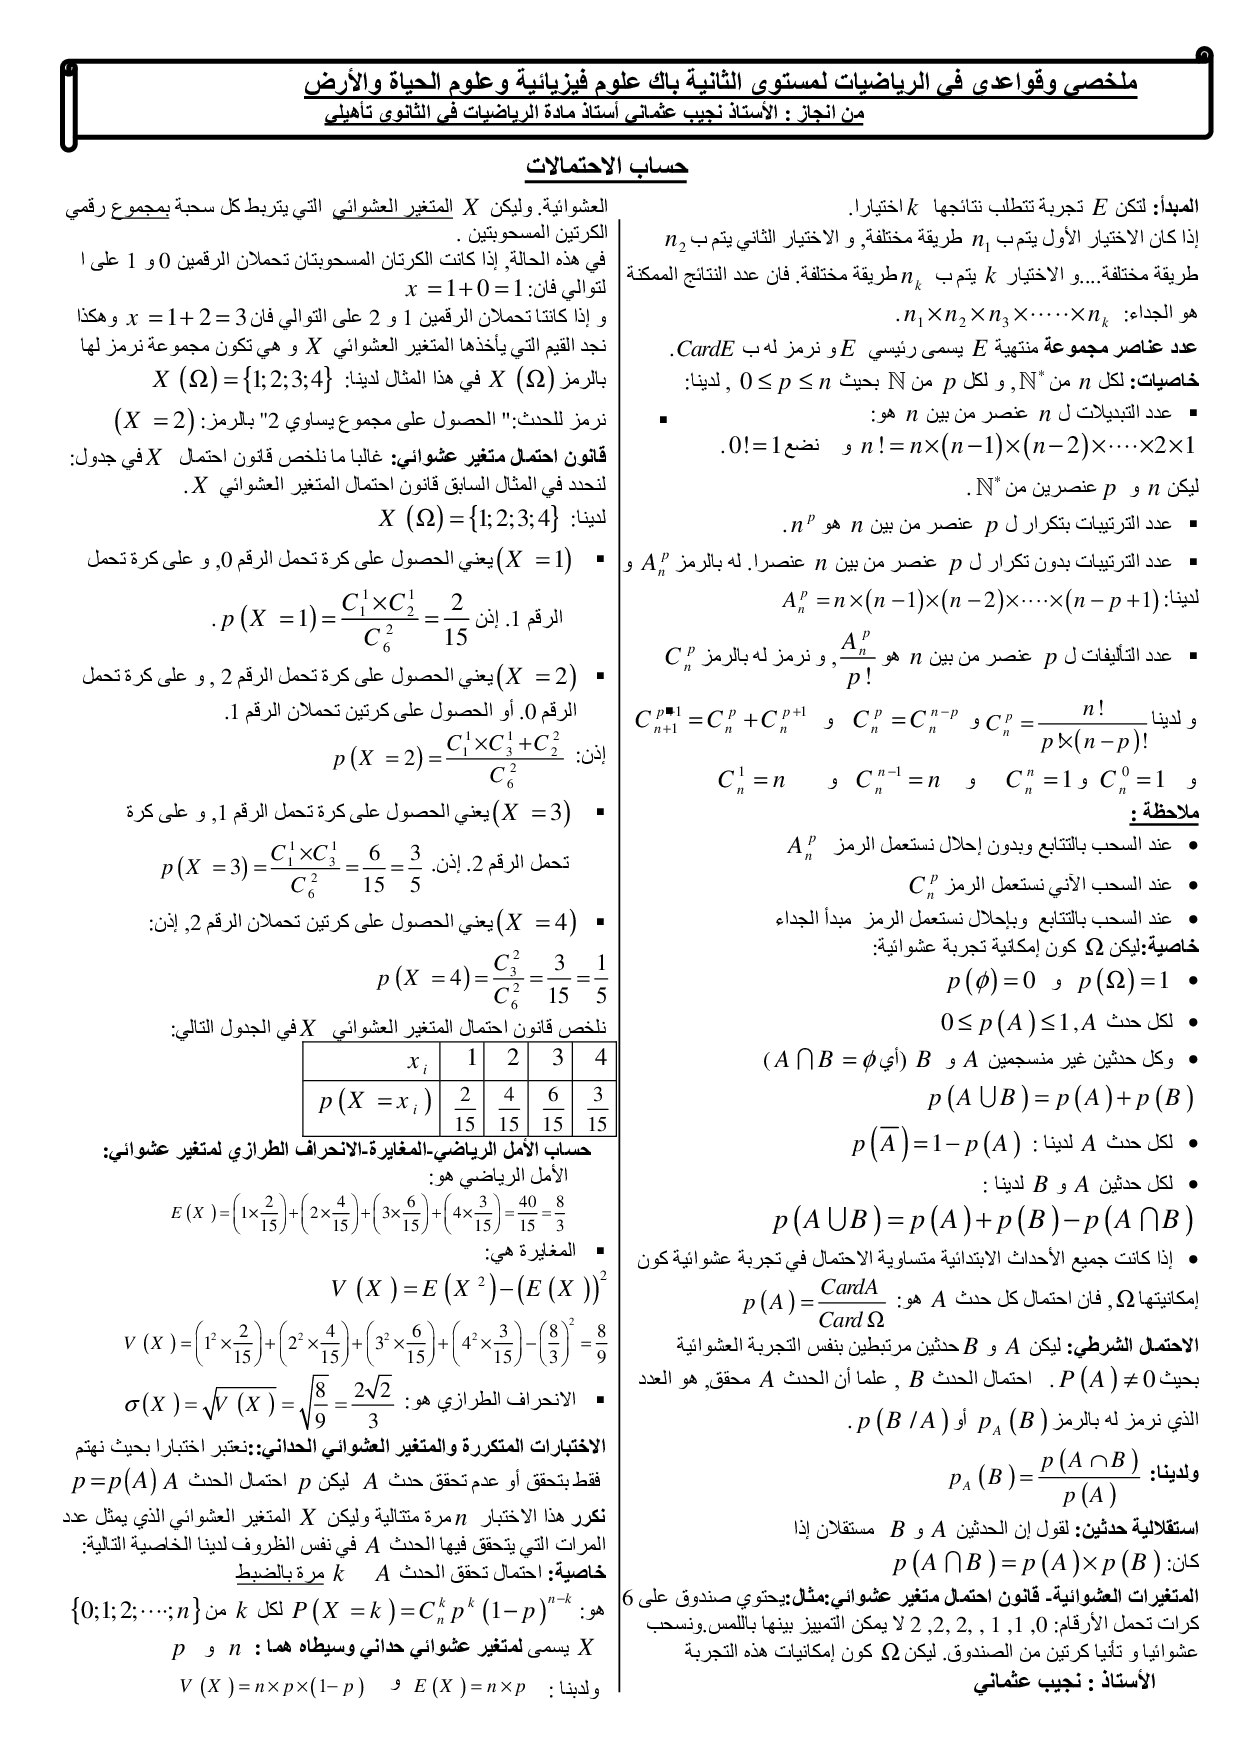 ملخصي وقواعدي في الرياضيات لمستوى الثانية باك علوم فيزيائية وعلوم الحياة والأرض
من انجاز : الأستاذ نجيب عثماني أستاذ مادة الرياضيات في الثانوي تأهيلي
حساب الاحتمالات
المبدأ: لتكن E تجربة تتطلب نتائجها k اختيارا.
إذا كان الاختيار الأول يتم ب n₁ طريقة مختلفة, و الاختيار الثاني يتم ب n₂
طريقة مختلفة....و الاختيار k يتم ب nₖ طريقة مختلفة. فان عدد النتائج الممكنة
هو الجداء: n₁×n₂×n₃×·····×nₖ .
عدد عناصر مجموعة منتهية E يسمى رئيسي E و نرمز له ب CardE.
خاصيات: لكل n من ℕ*, و لكل p من ℕ بحيث 0 ≤ p ≤ n , لدينا:
▪ عدد التبديلات ل n عنصر من بين n هو:
n! = n×(n−1)×(n−2)×····×2×1 و نضع 0!=1.
ليكن n و p عنصرين من ℕ* .
▪ عدد الترتيبات بتكرار ل p عنصر من بين n هو n^p .
▪ عدد الترتيبات بدون تكرار ل p عنصر من بين n عنصرا. له بالرمز A_n^p و
لدينا: A_n^p = n×(n−1)×(n−2)×····×(n−p+1)
▪ عدد التأليفات ل p عنصر من بين n هو A_n^p / p! , و نرمز له بالرمز C_n^p
و لدينا C_n^p = n! / (p!×(n−p)!) و C_n^p = C_n^{n−p} و C_{n+1}^{p+1} = C_n^p + C_n^{p+1}
و C_n^0 = 1 و C_n^n = 1 و C_n^{n−1} = n و C_n^1 = n
ملاحظة :
• عند السحب بالتتابع وبدون إحلال نستعمل الرمز A_n^p
• عند السحب الآني نستعمل الرمز C_n^p
• عند السحب بالتتابع وبإحلال نستعمل الرمز مبدأ الجداء
خاصية:ليكن Ω كون إمكانية تجربة عشوائية:
• p(Ω)=1 و p(ϕ)=0
• لكل حدث A, 0≤ p(A)≤1
• وكل حدثين غير منسجمين A و B (أي A∩B=ϕ)
p(A∪B)= p(A)+p(B)
• لكل حدث A لدينا : p(A̅)=1−p(A)
• لكل حدثين A و B لدينا :
p(A∪B)= p(A)+p(B)−p(A∩B)
• إذا كانت جميع الأحداث الابتدائية متساوية الاحتمال في تجربة عشوائية كون
إمكانيتها Ω, فان احتمال كل حدث A هو: p(A)= CardA / CardΩ
الاحتمال الشرطي: ليكن A و B حدثين مرتبطين بنفس التجربة العشوائية
بحيث P(A)≠0 . احتمال الحدث B , علما أن الحدث A محقق, هو العدد
الذي نرمز له بالرمز p_A(B) أو p(B/A) .
ولدينا: p_A(B)= p(A∩B) / p(A)
استقلالية حدثين: لقول إن الحدثين A و B مستقلان إذا
كان: p(A∩B)= p(A)×p(B)
المتغيرات العشوائية- قانون احتمال متغير عشوائي:مثال:يحتوي صندوق على 6
كرات تحمل الأرقام: 0, 1, 1 , 2, 2, 2 لا يمكن التمييز بينها باللمس.ونسحب
عشوائيا و تأنيا كرتين من الصندوق. ليكن Ω كون إمكانيات هذه التجربة
الأستاذ : نجيب عثماني
العشوائية. وليكن X المتغير العشوائي التي يتربط كل سحبة بمجموع رقمي
الكرتين المسحوبتين .
في هذه الحالة, إذا كانت الكرتان المسحوبتان تحملان الرقمين 0 و 1 على ا
لتوالي فان: x =1+0=1
و إذا كانتا تحملان الرقمين 1 و 2 على التوالي فان x =1+2=3 وهكذا
نجد القيم التي يأخذها المتغير العشوائي X و هي تكون مجموعة نرمز لها
بالرمز X(Ω) في هذا المثال لدينا: X(Ω)={1;2;3;4}
نرمز للحدث:" الحصول على مجموع يساوي 2" بالرمز: (X =2)
قانون احتمال متغير عشوائي: غالبا ما نلخص قانون احتمال X في جدول:
لنحدد في المثال السابق قانون احتمال المتغير العشوائي X .
لدينا: X(Ω)={1;2;3;4}
▪ (X =1) يعني الحصول على كرة تحمل الرقم 0, و على كرة تحمل
الرقم 1. إذن p(X =1)= (C_1^1×C_2^1) / C_6^2 = 2/15 .
▪ (X =2) يعني الحصول على كرة تحمل الرقم 2 , و على كرة تحمل
الرقم 0. أو الحصول على كرتين تحملان الرقم 1.
إذن: p(X =2)= (C_1^1×C_3^1+C_2^2) / C_6^2
▪ (X =3) يعني الحصول على كرة تحمل الرقم 1, و على كرة
تحمل الرقم 2. إذن. p(X =3)= (C_1^1×C_3^1) / C_6^2 = 6/15 = 3/5
▪ (X =4) يعني الحصول على كرتين تحملان الرقم 2, إذن:
p(X =4)= C_3^2 / C_6^2 = 3/15 = 1/5
نلخص قانون احتمال المتغير العشوائي X في الجدول التالي:
x_i 1 2 3 4
p(X =x_i) 2/15 4/15 6/15 3/15
حساب الأمل الرياضي-المغايرة-الانحراف الطرازي لمتغير عشوائي:
الأمل الرياضي هو:
E(X)=(1×2/15)+(2×4/15)+(3×6/15)+(4×3/15)=40/15=8/3
▪ المغايرة هي:
V(X)=E(X²)−(E(X))²
V(X)=(1²×2/15)+(2²×4/15)+(3²×6/15)+(4²×3/15)−(8/3)²=8/9
▪ الانحراف الطرازي هو: σ(X)=√V(X)=√(8/9)=2√2/3
الاختبارات المتكررة والمتغير العشوائي الحداني::نعتبر اختبارا بحيث نهتم
فقط بتحقق أو عدم تحقق حدث A ليكن p احتمال الحدث A p=p(A)
نكرر هذا الاختبار n مرة متتالية وليكن X المتغير العشوائي الذي يمثل عدد
المرات التي يتحقق فيها الحدث A في نفس الظروف لدينا الخاصية التالية:
خاصية: احتمال تحقق الحدث A k مرة بالضبط
هو: P(X =k)=C_n^k p^k (1−p)^{n−k} لكل k من {0;1;2;····;n}
X يسمى لمتغير عشوائي حداني وسيطاه هما : n و p
ولدينا : E(X)=n×p و V(X)=n×p×(1−p)